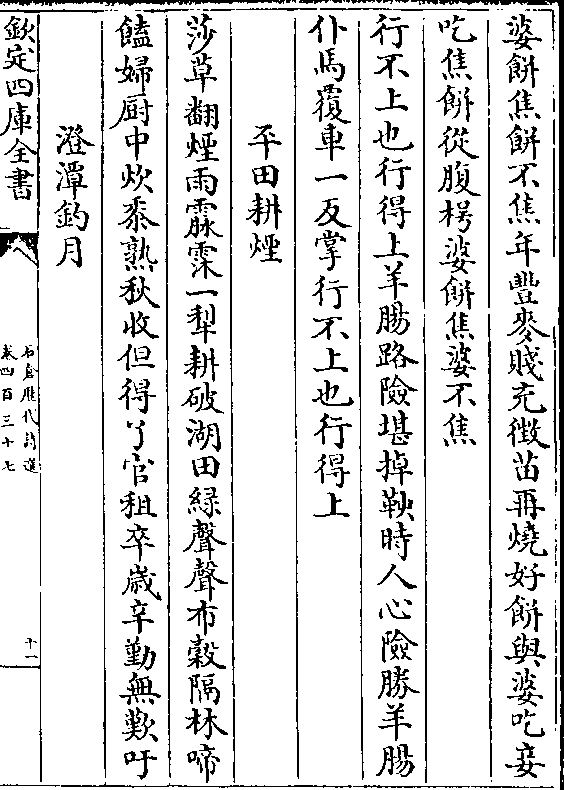 婆餅焦餅不焦年豐麥賤充徴苗再燒好餅與婆吃妾
吃焦餅從腹枵婆餅焦婆不焦
行不上也行得上羊腸路險堪掉鞅時人心險勝羊腸
仆馬覆車一反掌行不上也行得上
平田耕煙
莎草翻煙雨霡霂一犁耕破湖田緑聲聲布穀隔林啼
饁婦厨中炊黍熟秋收但得了官租卒歳辛勤無歎吁
澄潭釣月
欽定四庫全書
石倉歴代詩選
卷四百三十七
十一